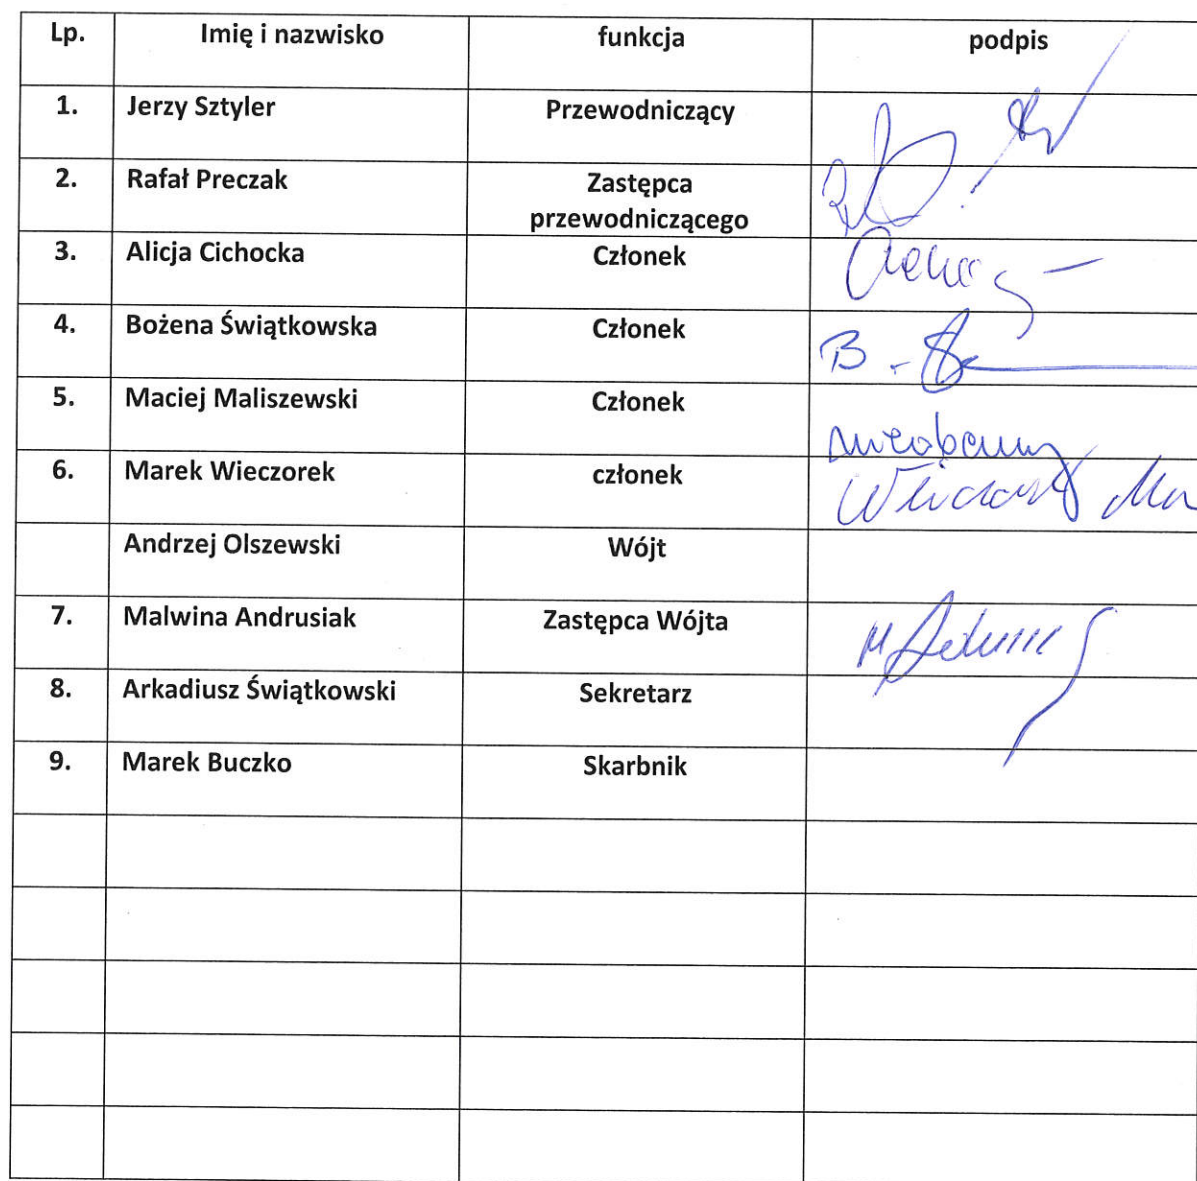 Lp. Imię i nazwisko funkcja podpis
1. Jerzy Sztyler Przewodniczący
2. Rafał Preczak Zastępca
przewodniczącego
3. Alicja Cichocka Członek
4. Bożena Świątkowska Członek B.
5. Maciej Maliszewski Członek nieobecny
6. Marek Wieczorek członek
Andrzej Olszewski Wójt
7. Malwina Andrusiak Zastępca Wójta
8. Arkadiusz Świątkowski Sekretarz
9. Marek Buczko Skarbnik